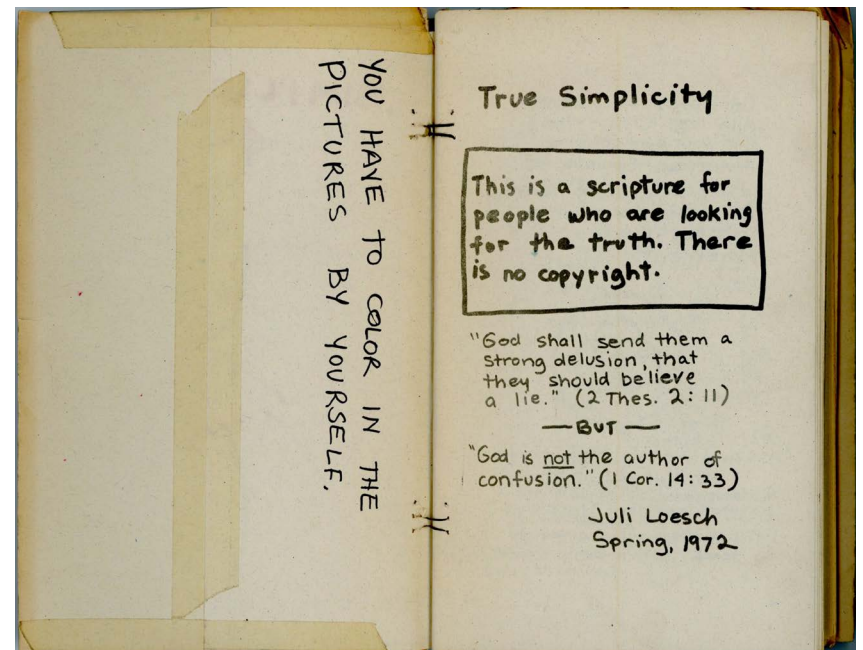 YOU HAVE TO COLOR IN THE
PICTURES BY YOURSELF.
True Simplicity
This is a scripture for
people who are looking
for the truth. There
is no copyright.
"God shall send them a
strong delusion, that
they should believe
a lie." (2 Thes. 2:11)
—BUT—
"God is not the author of
confusion." (1 Cor. 14:33)
Juli Loesch
Spring, 1972